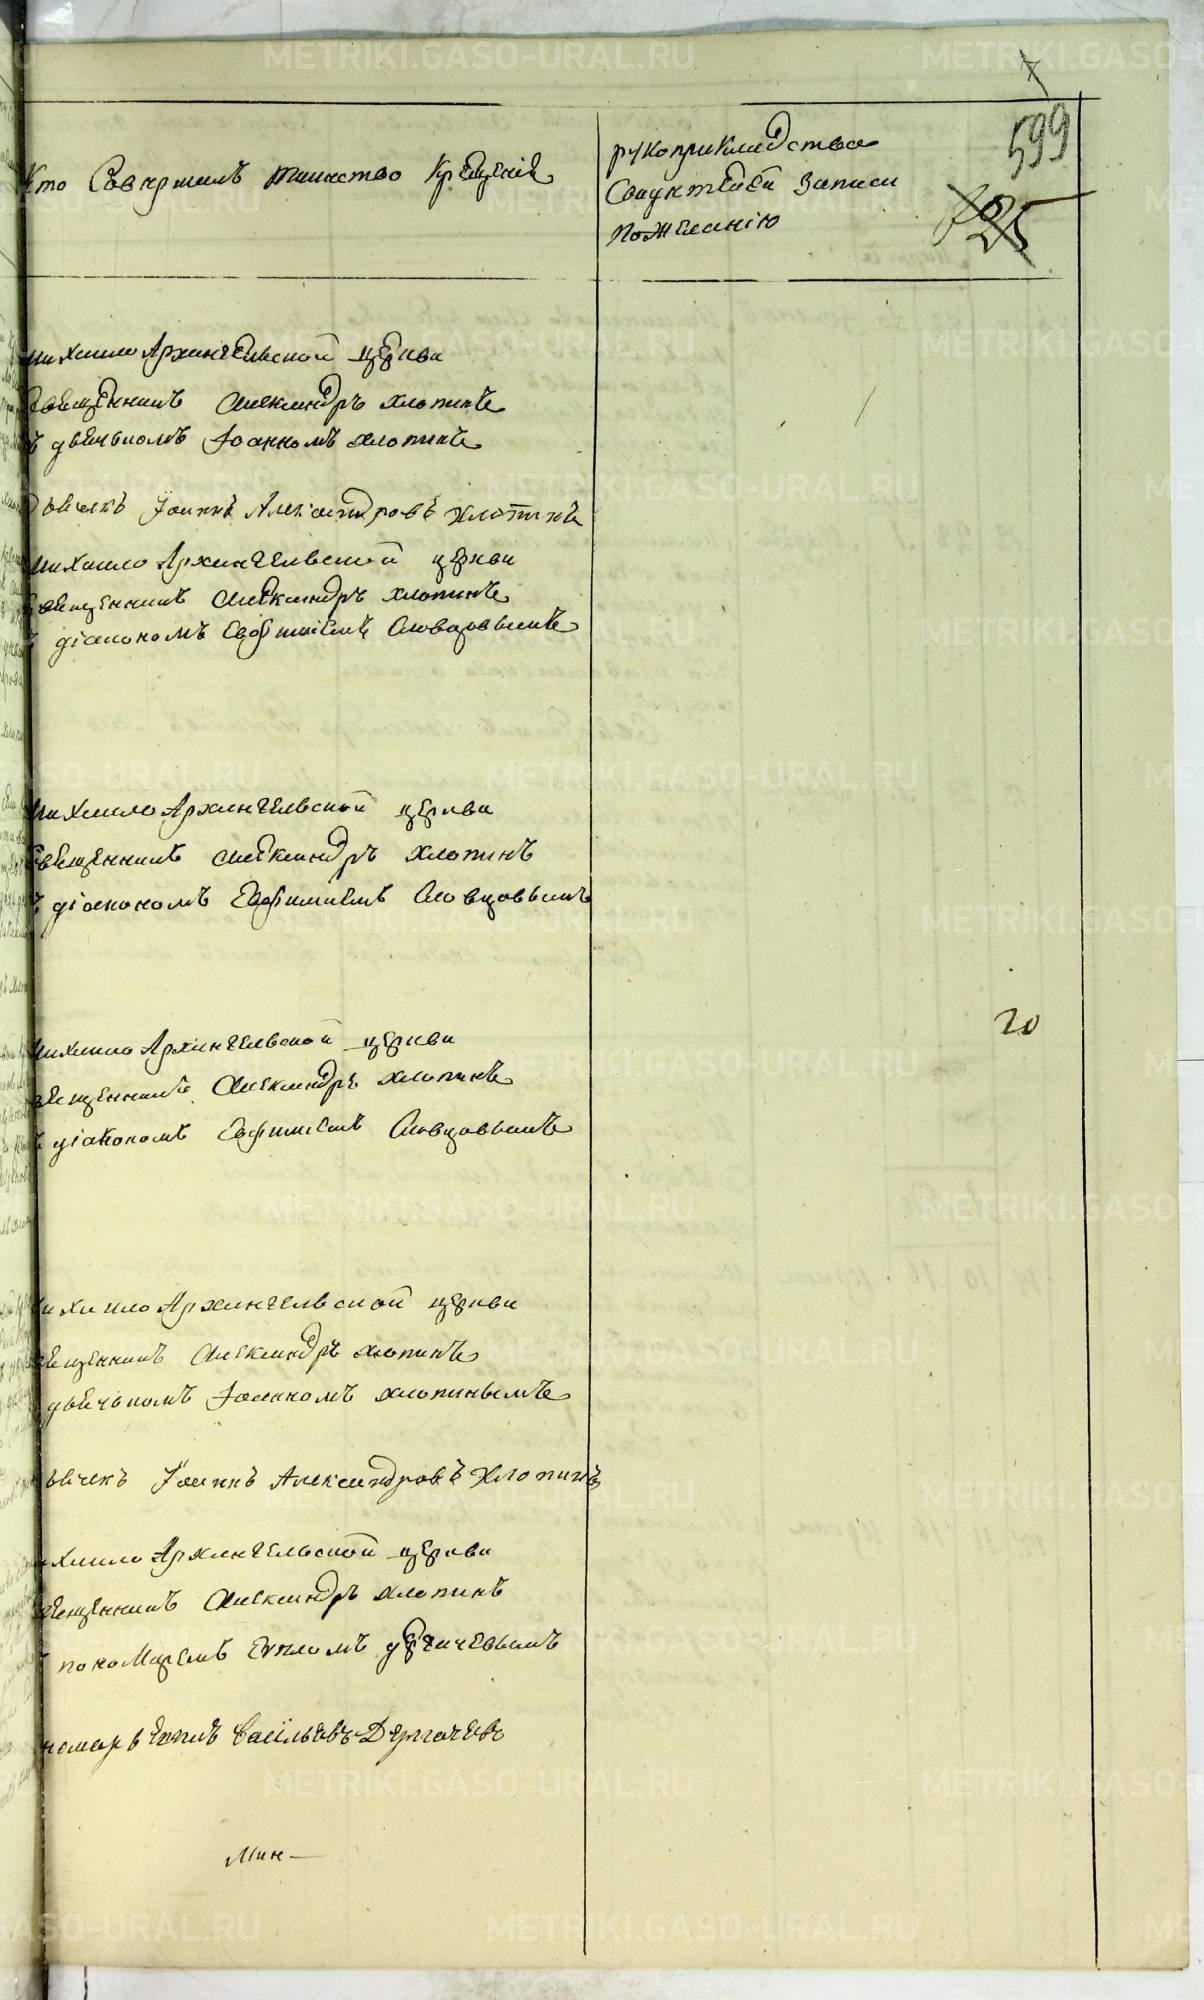 7
599
25
Кто Совершилъ таинство Крещенiе
рукоприкладства
Свидетелей Записи
по желанiю
михаило Архангельской церкви
священникъ Александръ хлопинъ
дьячькомъ Iоанномъ хлопинъ
дьячекъ Iоаннъ Александровъ хлопинъ
михаило Архангельской церкви
священникъ Александръ хлопинъ
дiакономъ Евфимiемъ Словцовымъ
михаило Архангельской церкви
священникъ Александръ хлопинъ
дiакономъ Евфимиемъ Словцовымъ
20
михаило Архангельской церкви
священникъ Александръ хлопинъ
дiакономъ Евфимиемъ Словцовымъ
михаило Архангельской церкви
вещенникъ Александръ хлопинъ
дьячькомъ Iоанномъ хлопинымъ
ьячекъ Iоаннъ Александровъ Хлопинъ
ихаило Архангельской церкви
вещенникъ Александръ хлопинъ
пономаремъ Евпломъ дергачевымъ
номарь Евплъ Васильевъ Дергачевъ
Мин
METRIKI.GASO-URAL.RU